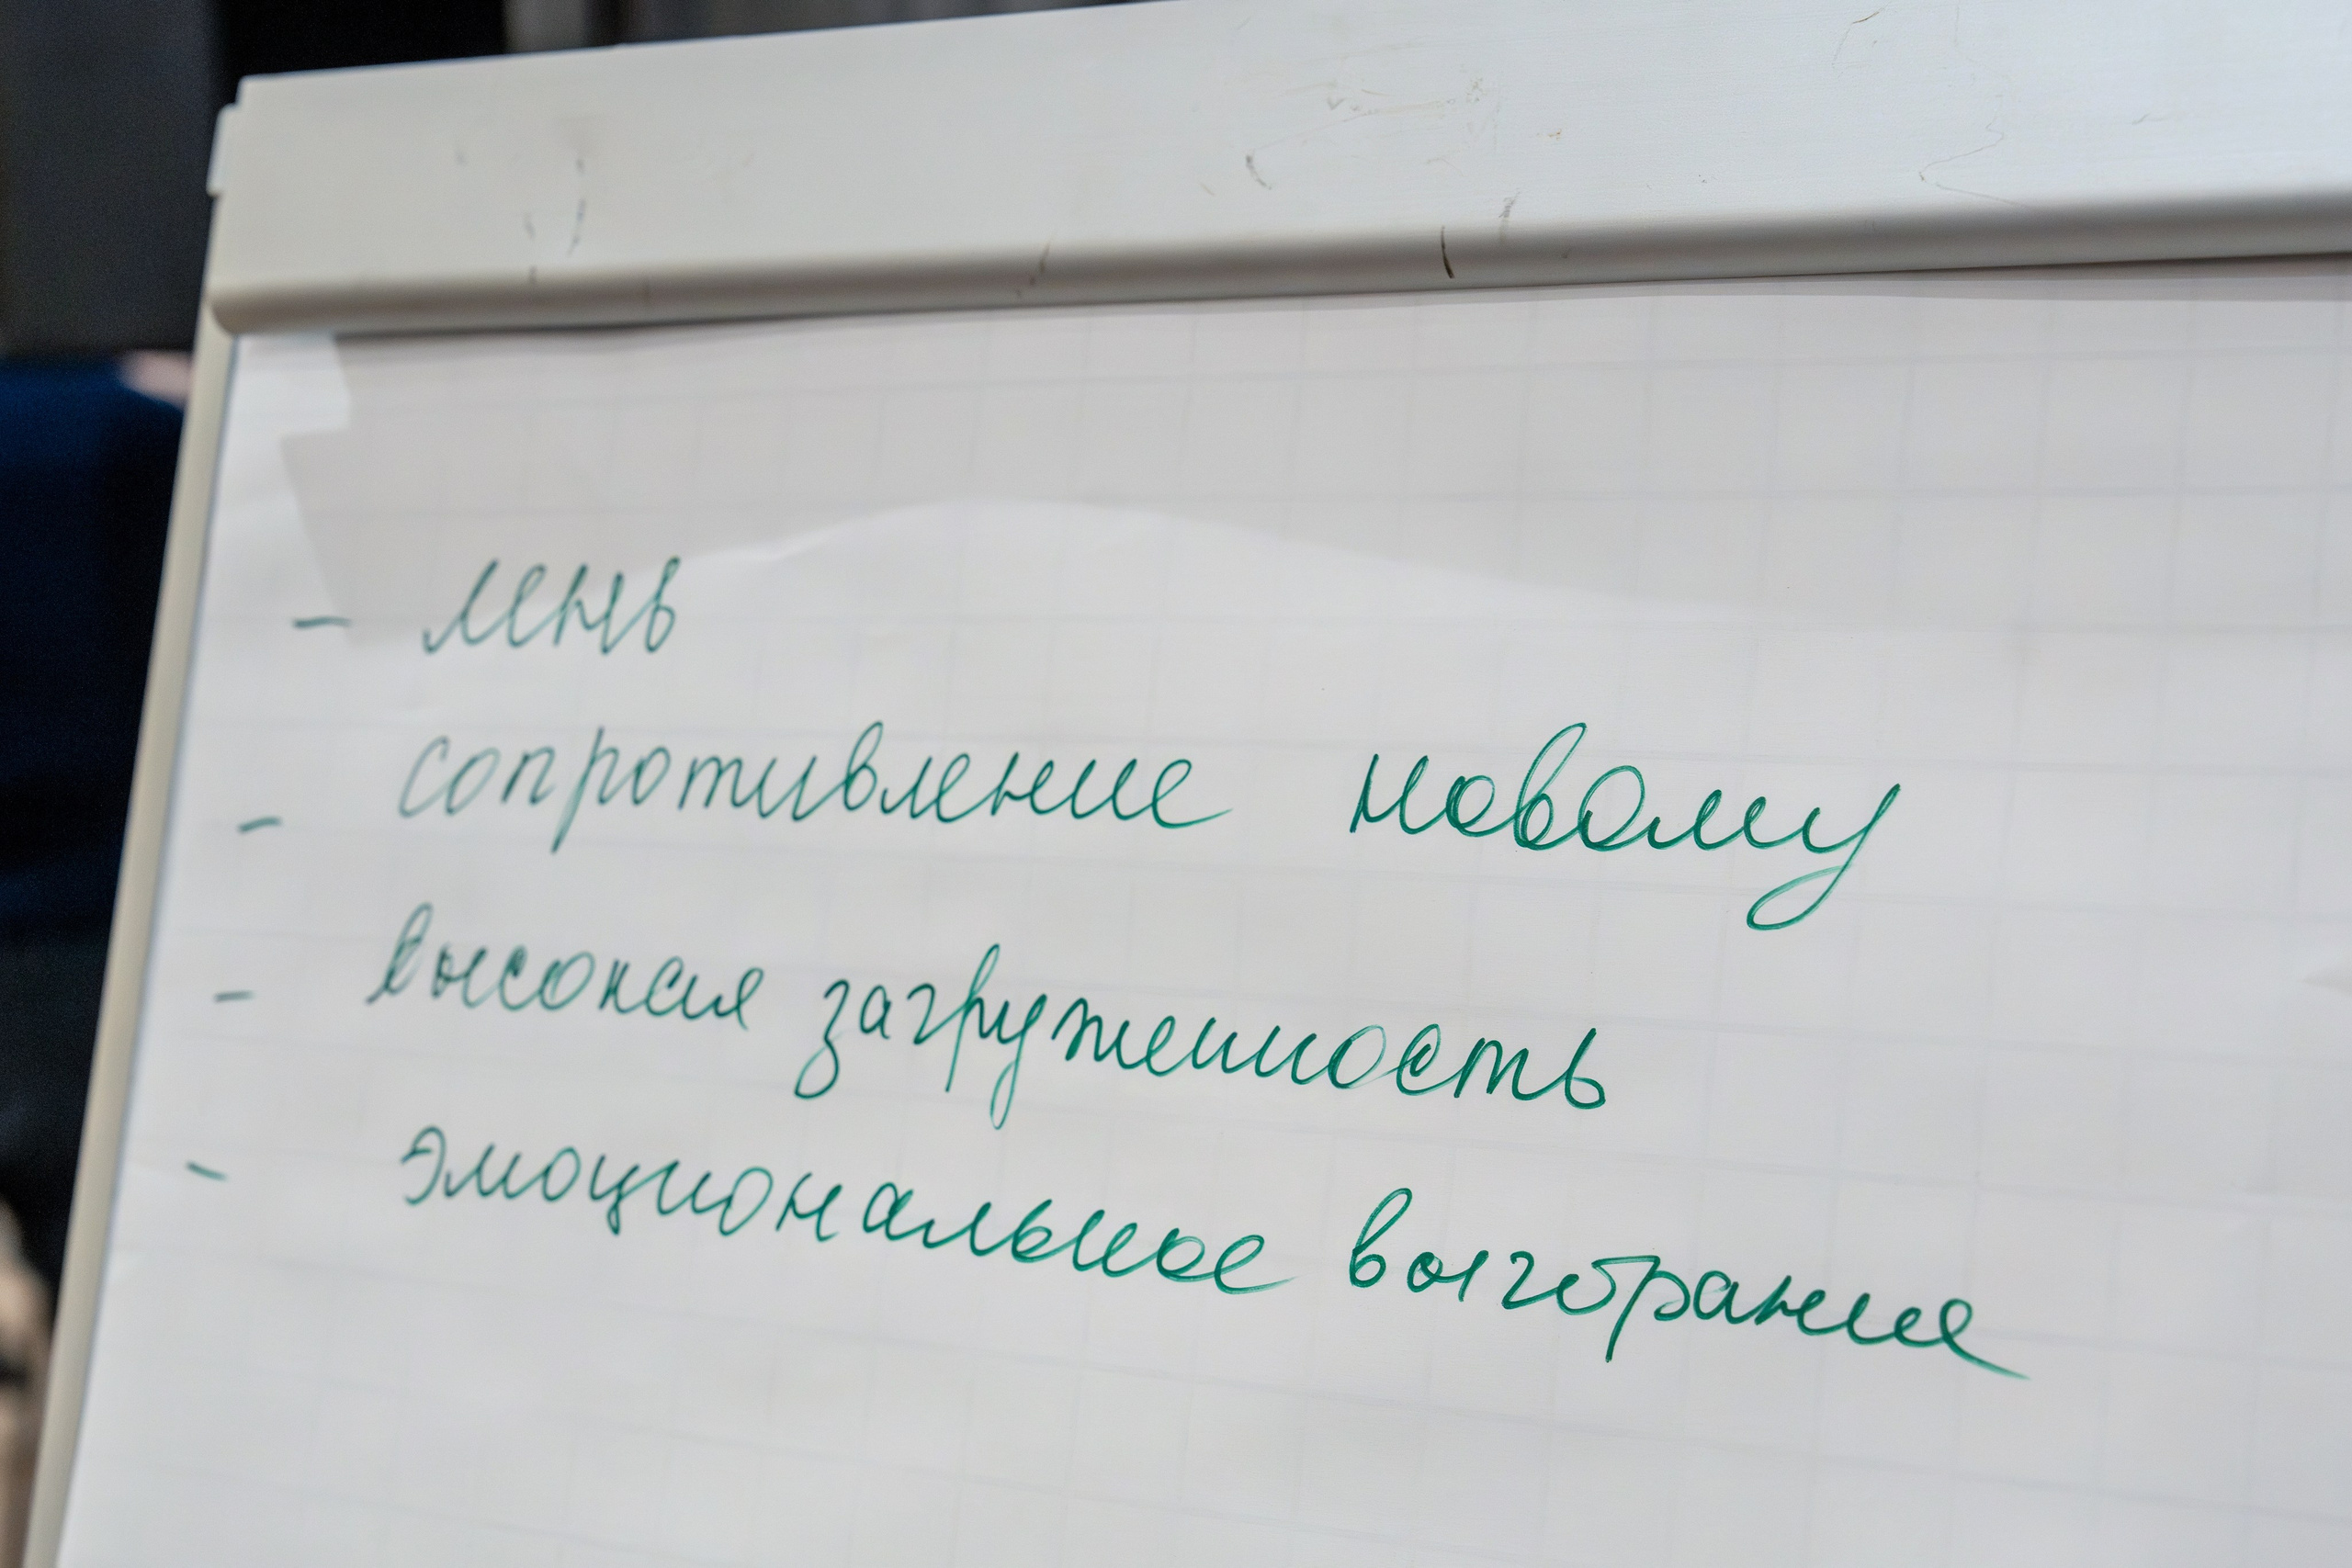 - лень
- сопротивление новому
- высокая загруженность
- эмоциональное выгорание